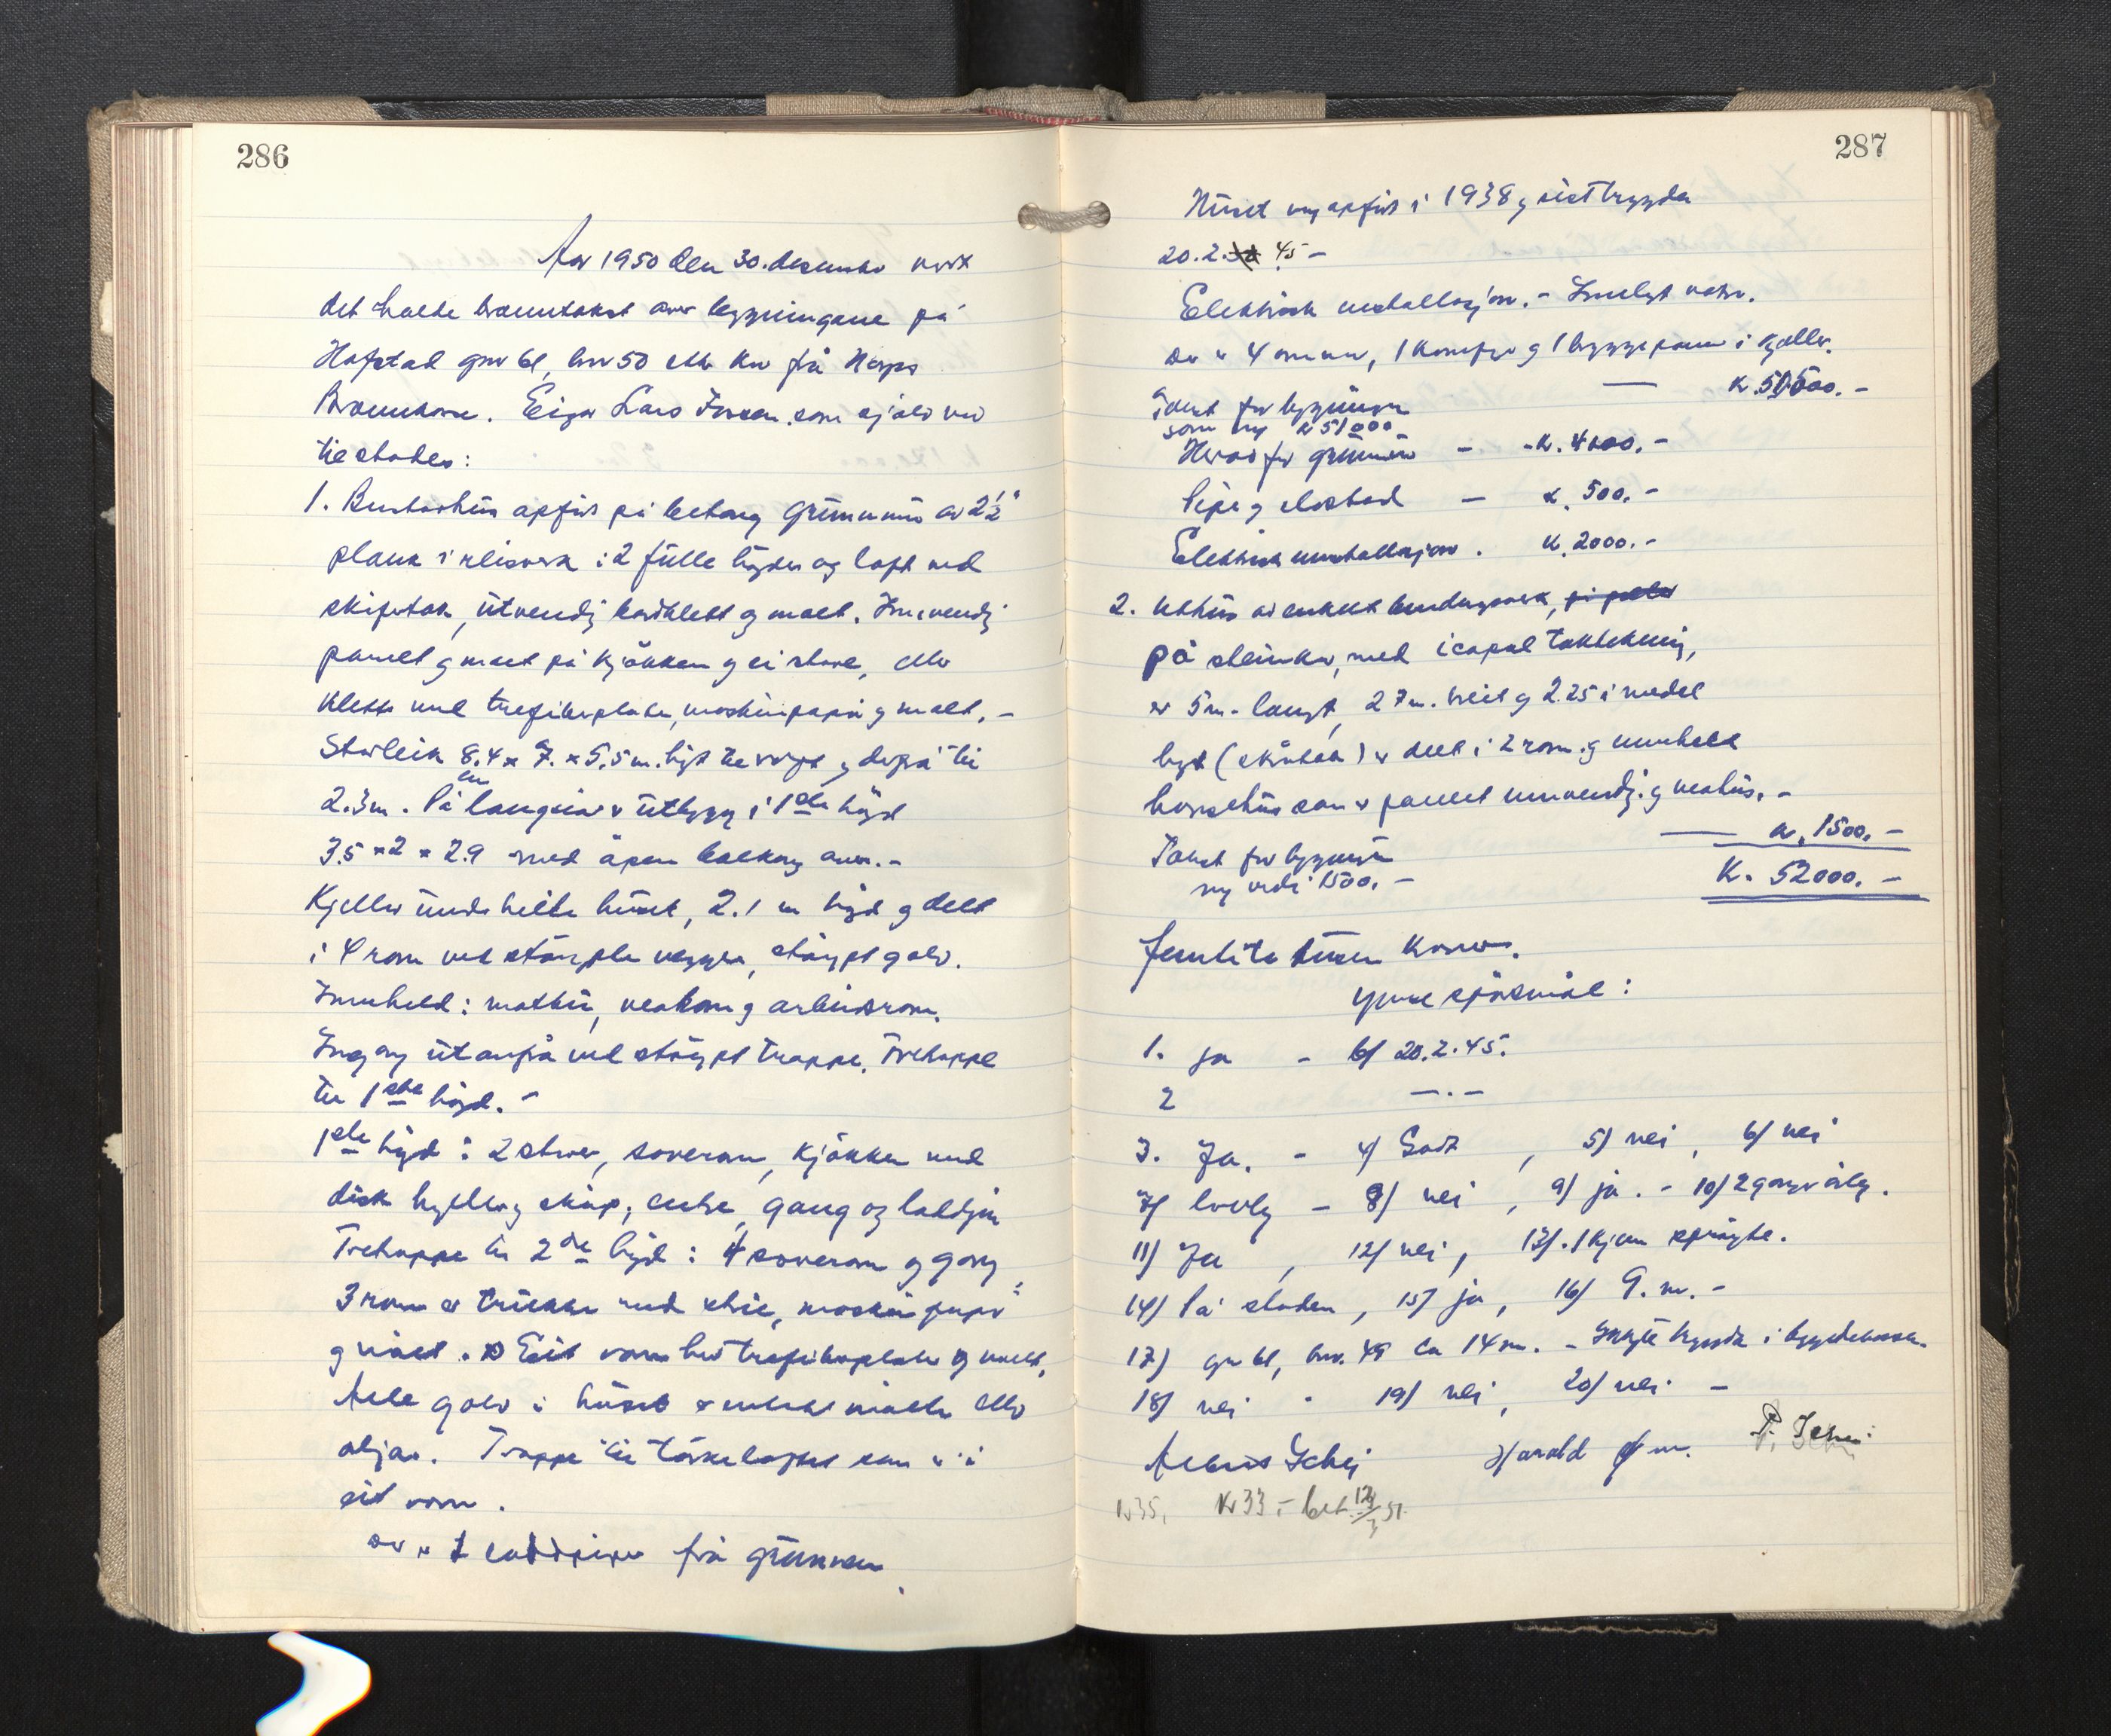 286
Aar 1950 den 30. desember vart
det halde branntakst over bygningane på
Hofstad gnr 61, bnr 50 etter krav frå Norges
Brannkasse. Eigar Lars som sjølv var
tilstades:
1. Bustadhus oppført på betong grunnmur av 2½"
plank i reisverk i 2 fulle högder og loft med
skifertak, utvendig bordklett og malt. Innvendig
panelt og malt på kjökken og ei stove, elles
klett med trefiberplater, maskinpapir og malt. -
Storleik 8.4 x 7. x 5.5 m. högt til röst og derfrå til
2.3 m. På ein langside er utbygg i 1ste högd
3.5 x 2 x 2.9 med åpen balkong over. -
Kjeller under heile huset, 2.1 m högd og delt
i 4 rom med stöypte vegger, stöypt golv.
Innheld: matbu, vedrom og arbeidsrom.
Inngang utanfrå med stöypt trappe. Tretrappe
til 1ste högd. -
1ste högd: 2 stover, soverom, kjökken med
disk hyller og skåp, entre, gang og
Tretrappe til 2dre högd: 4 soverom og gang
3 rom er trukke med strie, maskinpapir
og målt. Eit rom har trefiberplater og malt.
Alle golv i huset er enten målte eller
oljas. Trappe til törkeloftet som er i
eit rom.
Der er 1 frå grunnen
287
Huset er oppfört i 1938 og sist trygda
20.2. 45 -
Elektrisk installasjon. - Innlagt vatn.
Der er 4 omnar, 1 komfyr og 1 bryggepanne i kjeller.
Takst for bygningen — K 50500. -
som ny K 51000
Herav for grunnmur - - K. 4000. -
Pipe og eldstad - K. 500. -
Elektrisk installasjon. K. 2000. -
2. Uthus av enkelt bindingsverk,
på steinkar, med icopal taktekking,
er 5 m. langt, 2.7 m. breit og 2.25 i medel
högt (skråtak) er delt i 2 rom og inneheld
hönsehus som er panelt innvendig og vedhus. -
— K. 1500. -
Takst for bygningen
ny verdi 1500. -
K. 52000. -
Femtito tusen kroner.
Ymse spörsmål:
1. ja - b/ 20.2.45.
2 -.-
3. Ja. - 4/ Godt, 5) nei, 6/ nei
7/ - 8/ nei, 9/ ja. - 10/ 2 gonger årleg.
11) Ja, 12/ nei, 13/. 1 kjem spröyte.
14) På staden, 15/ ja, 16/ 9. m. -
17) gnr 61, bnr. 49 ca 14 m. - trygda i bygdekassa.
18) nei - 19) nei, 20/ nei -
Harald
Kr 35, Kr 33. - bet. 12/3 51.